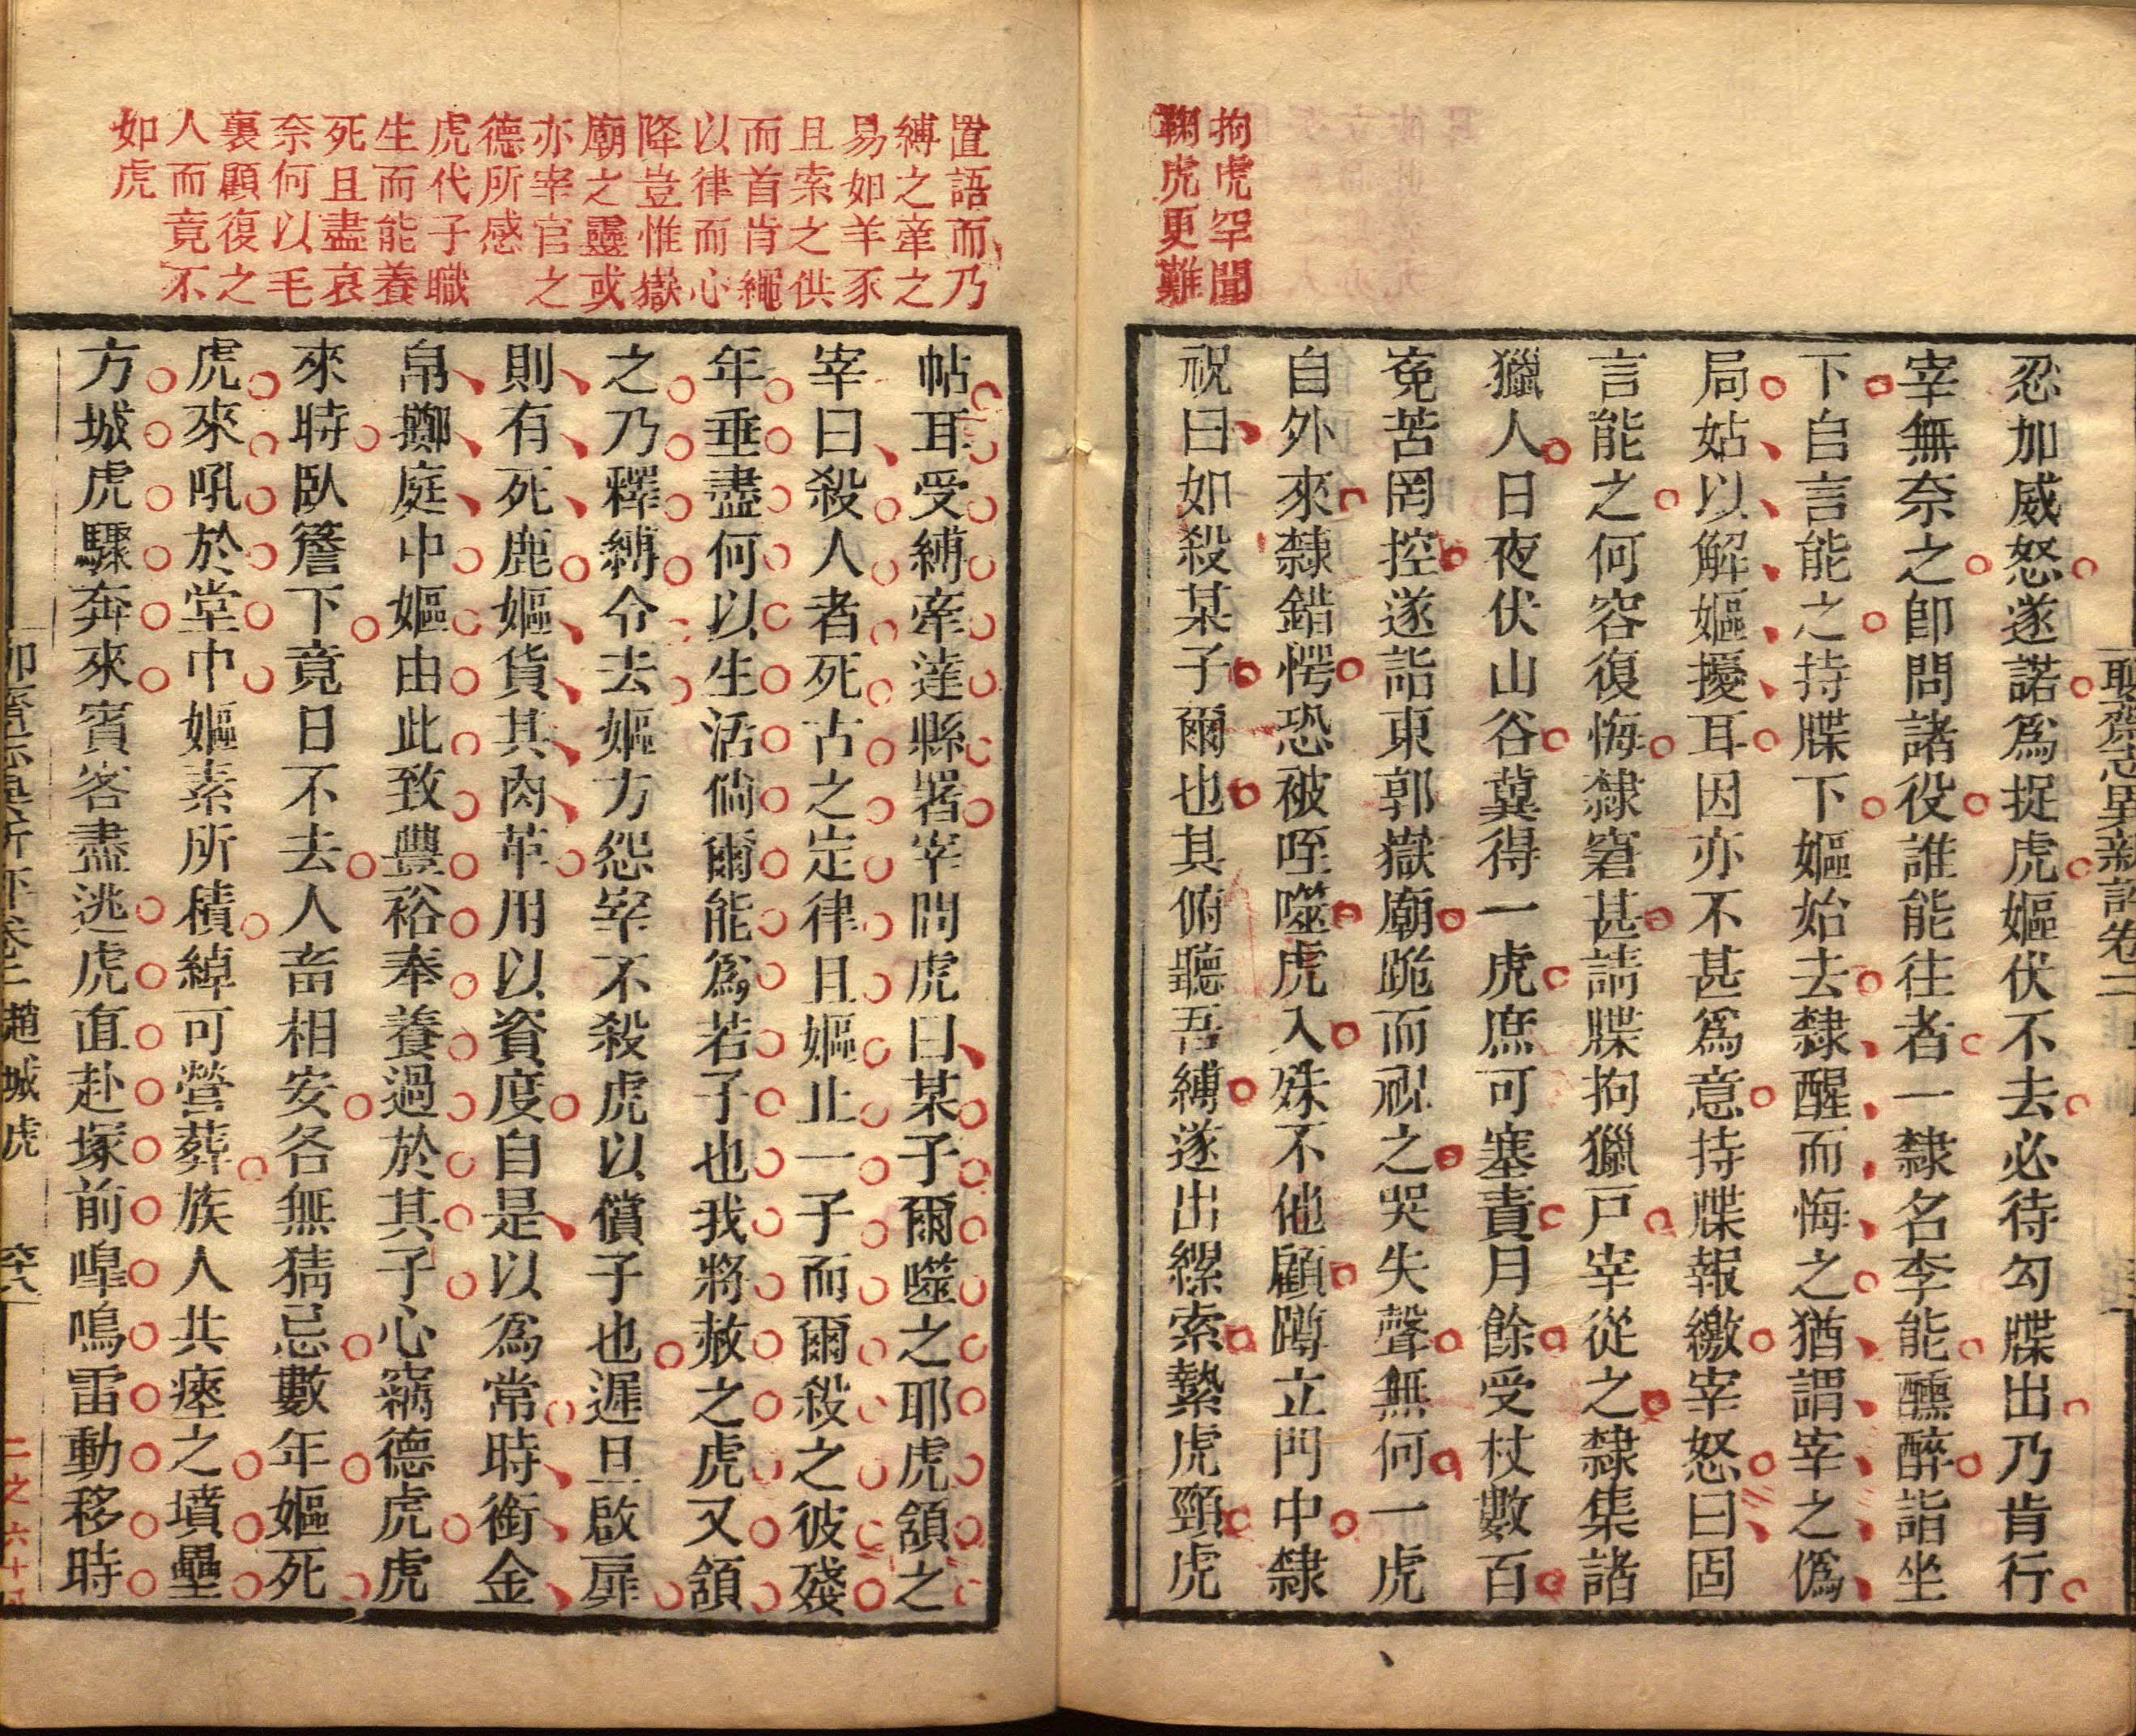 聊齋志異新評卷二
拘虎罕聞
鞫虎更難
忍加威怒遂諾爲捉虎嫗伏不去必待勾牒出乃肯行
宰無奈之卽問諸役誰能往者一隸名李能醺醉詣坐
下自言能之持牒下嫗始去隸醒而悔之猶謂宰之僞
局姑以解嫗擾耳因亦不甚爲意持牒報繳宰怒曰固
言能之何容復悔隸窘甚請牒拘獵戶宰從之隸集諸
獵人日夜伏山谷冀得一虎庶可塞責月餘受杖數百
寃苦罔控遂詣東郭嶽廟跪而祝之哭失聲無何一虎
自外來隸錯愕恐被咥噬虎入殊不他顧蹲立門中隸
祝曰如殺某子爾也其俯聽吾縛遂出縲索縶虎頸虎
置語而乃
縛之牽之
易如羊豕
且索之供
而首肯繩
以律而心
降豈惟嶽
廟之靈或
亦宰官之
德所感
虎代子職
生而能養
死且盡哀
奈何以毛
裏顧復之
人而竟不
如虎
帖耳受縛牽達縣署宰問虎曰某子爾噬之耶虎頷之
宰曰殺人者死古之定律且嫗止一子而爾殺之彼殘
年垂盡何以生活倘爾能爲若子也我將赦之虎又頷
之乃釋縛令去嫗方怨宰不殺虎以償子也遲旦啟扉
則有死鹿嫗貨其肉革用以資度自是以爲常時銜金
帛擲庭中嫗由此致豐裕奉養過於其子心竊德虎虎
來時臥簷下竟日不去人畜相安各無猜忌數年嫗死
虎來吼於堂中嫗素所積綽可營葬族人共瘞之墳壘
方城虎驟奔來賓客盡逃虎直赴塚前嘷鳴雷動移時
聊齋志異新評卷二 趙城虎 六八
二之六十